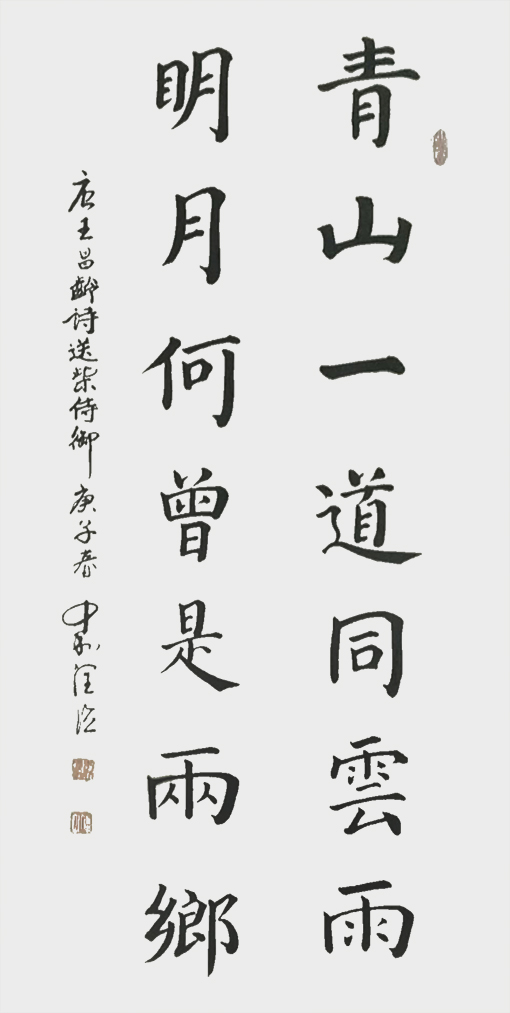 青山一道同雲雨
明月何曾是兩鄉
唐王昌齡詩送柴侍御 庚子春